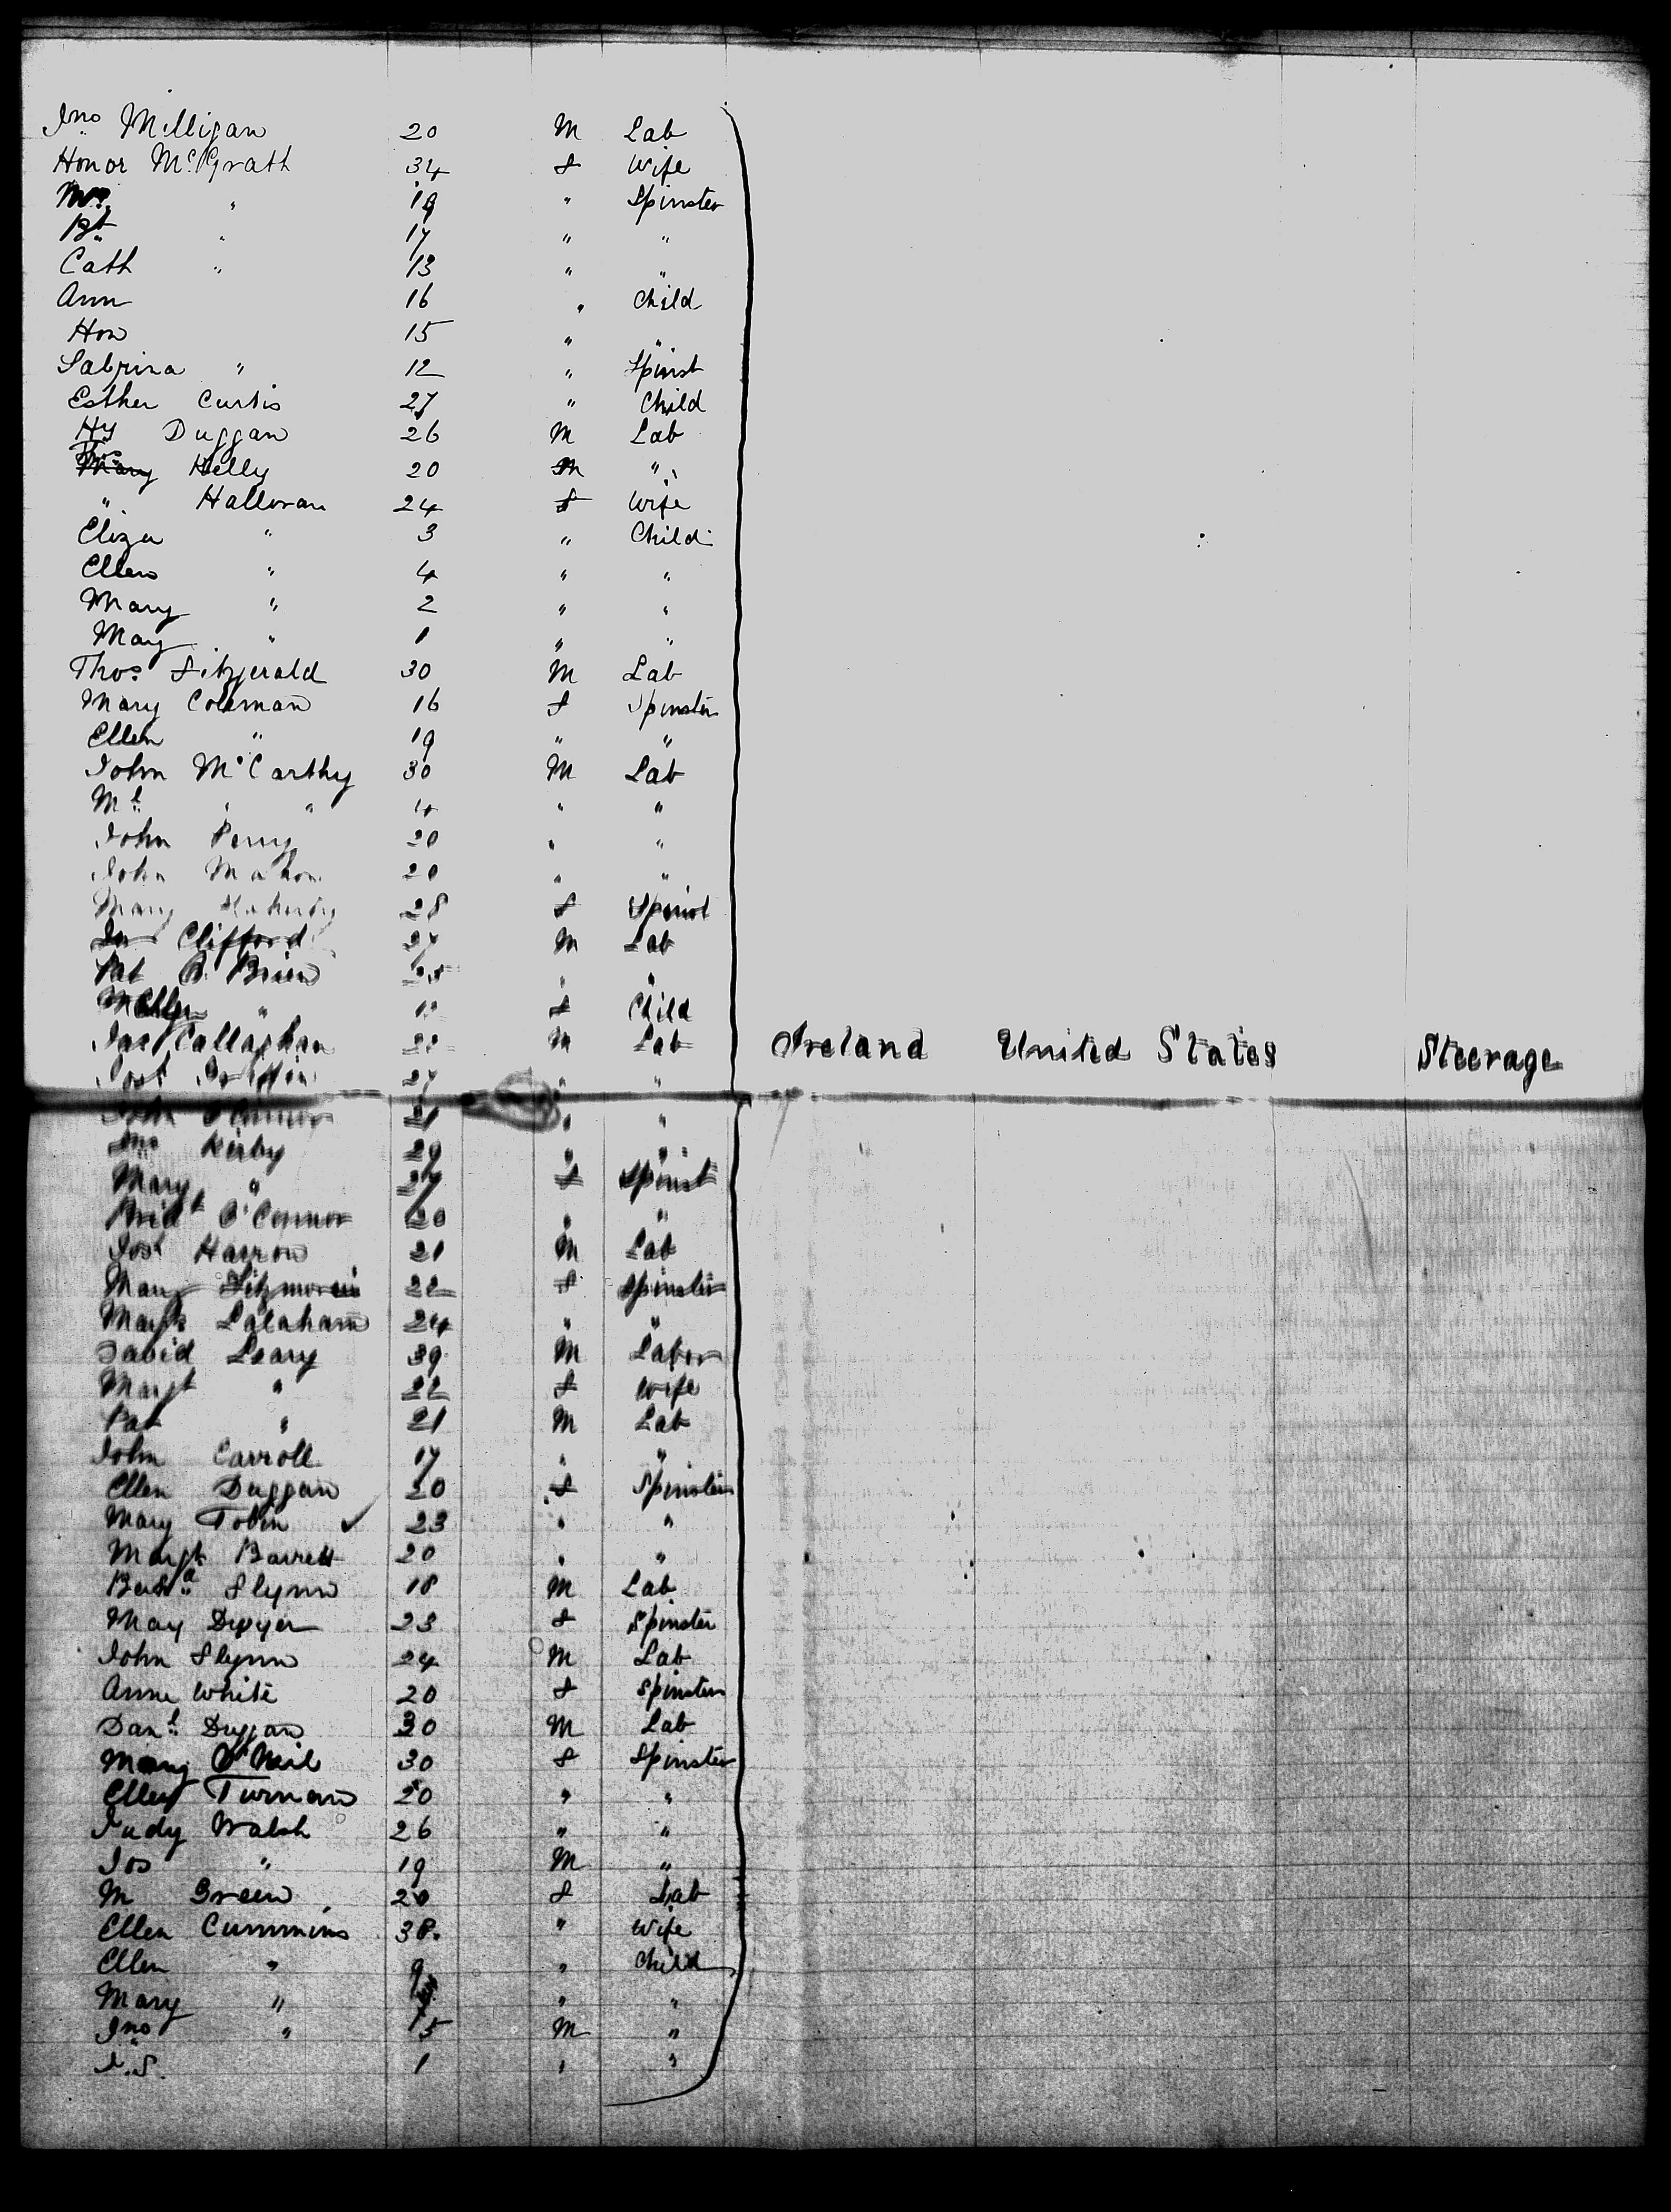 Jno Milligan 20 M Lab
Honor McGrath 34 f Wife
" 19 " Spinster
Bt " 17 " "
Cath " 13 " "
Ann 16 " Child
Hon 15 " "
Sabrina " 12 " Spinst
Esther Curtis 27 " Child
Hy Duggan 26 M Lab
Thos Kelly 20 M "
" Halloran 24 f Wife
Eliza " 3 " Child
Ellen " 4 " "
Mary " 2 " "
May " 1 " "
Thos Fitzgerald 30 M Lab
Mary Coleman 16 f Spinster
Ellen " 19 " "
John McCarthy 30 M Lab
Ml " " "  "
John Perry 20 " "
John Mahon 20 " "
Mary 28 f Spinst
Clifford 27 M Lab
Pat O'Brien " "
" f Child
Jas Callaghan M Lab Ireland United States Steerage
27 " "
John O'Connor 21 " "
Jno Kirby 29 " "
Mary " 27 f Spinst
Bridt O'Connor 20 " "
Josh Harron 21 M Lab
Mary Fitzmorris 22 f Spinster
Margt Calaham 24 " "
David Leary 39 M Labor
Margt " 22 f Wife
Pat " 21 M Lab
John Carroll 17 " "
Ellen Duggan 20 f Spinster
Mary Tobin ✓ 23 " "
Margt Barrett 20 " "
Flynn 18 M Lab
May Dwyer 23 f Spinster
John Flynn 24 M Lab
Anne White 20 f Spinster
Danl Duggan 30 M Lab
Mary O'Neil 30 f Spinster
Ellen Turnan 20 " "
Judy Walsh 26 " "
Jos " 19 M "
M Green 20 f Lab
Ellen Cummins 38 " Wife
Ellen " 9 " Child
Mary " " "
Jno " 5 M "
J.S. 1 " "